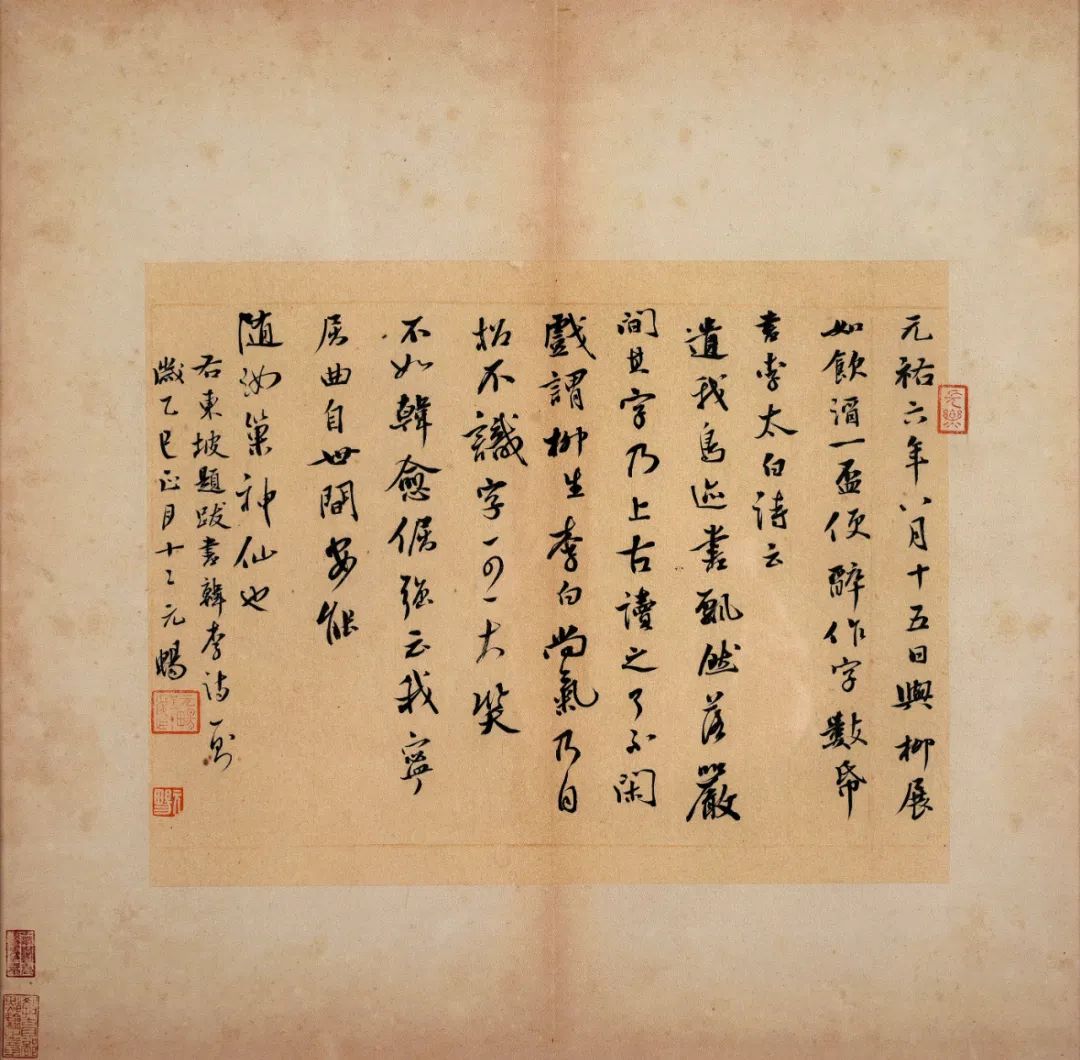 元祐六年八月十五日與柳展
如飲酒一盃便醉作字數紙
書李太白詩云
遺我鳥迹書飄然落巖
間其字乃上古讀之了不閑
戲謂柳生李白尚氣乃自
招不識字一可一大笑
不如韓愈倔强云我寧
屈曲自世間安能
隨汝巢神仙也
右東坡題跋書韓李詩一則
歲乙巳正月十二元暢